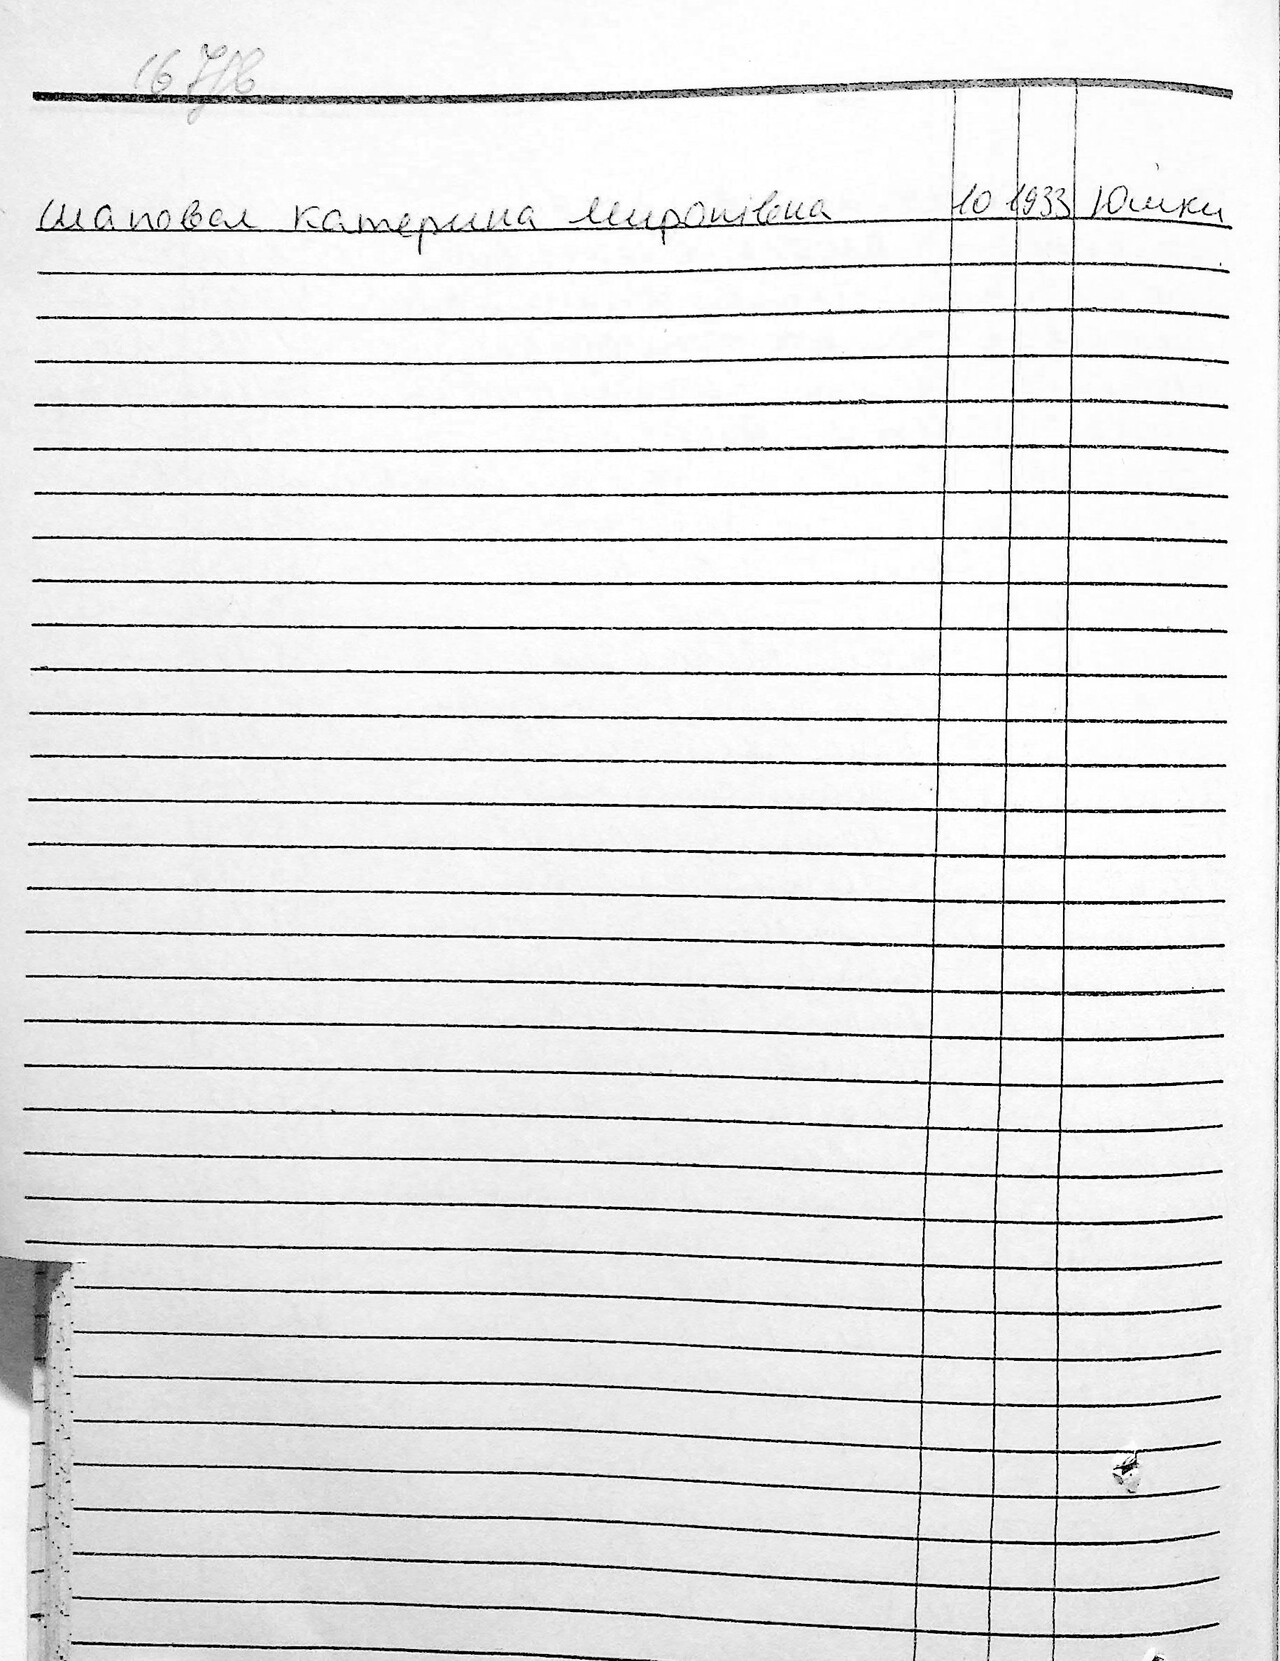 Шаповал Катерина Миронівна 10 1933 Юшки